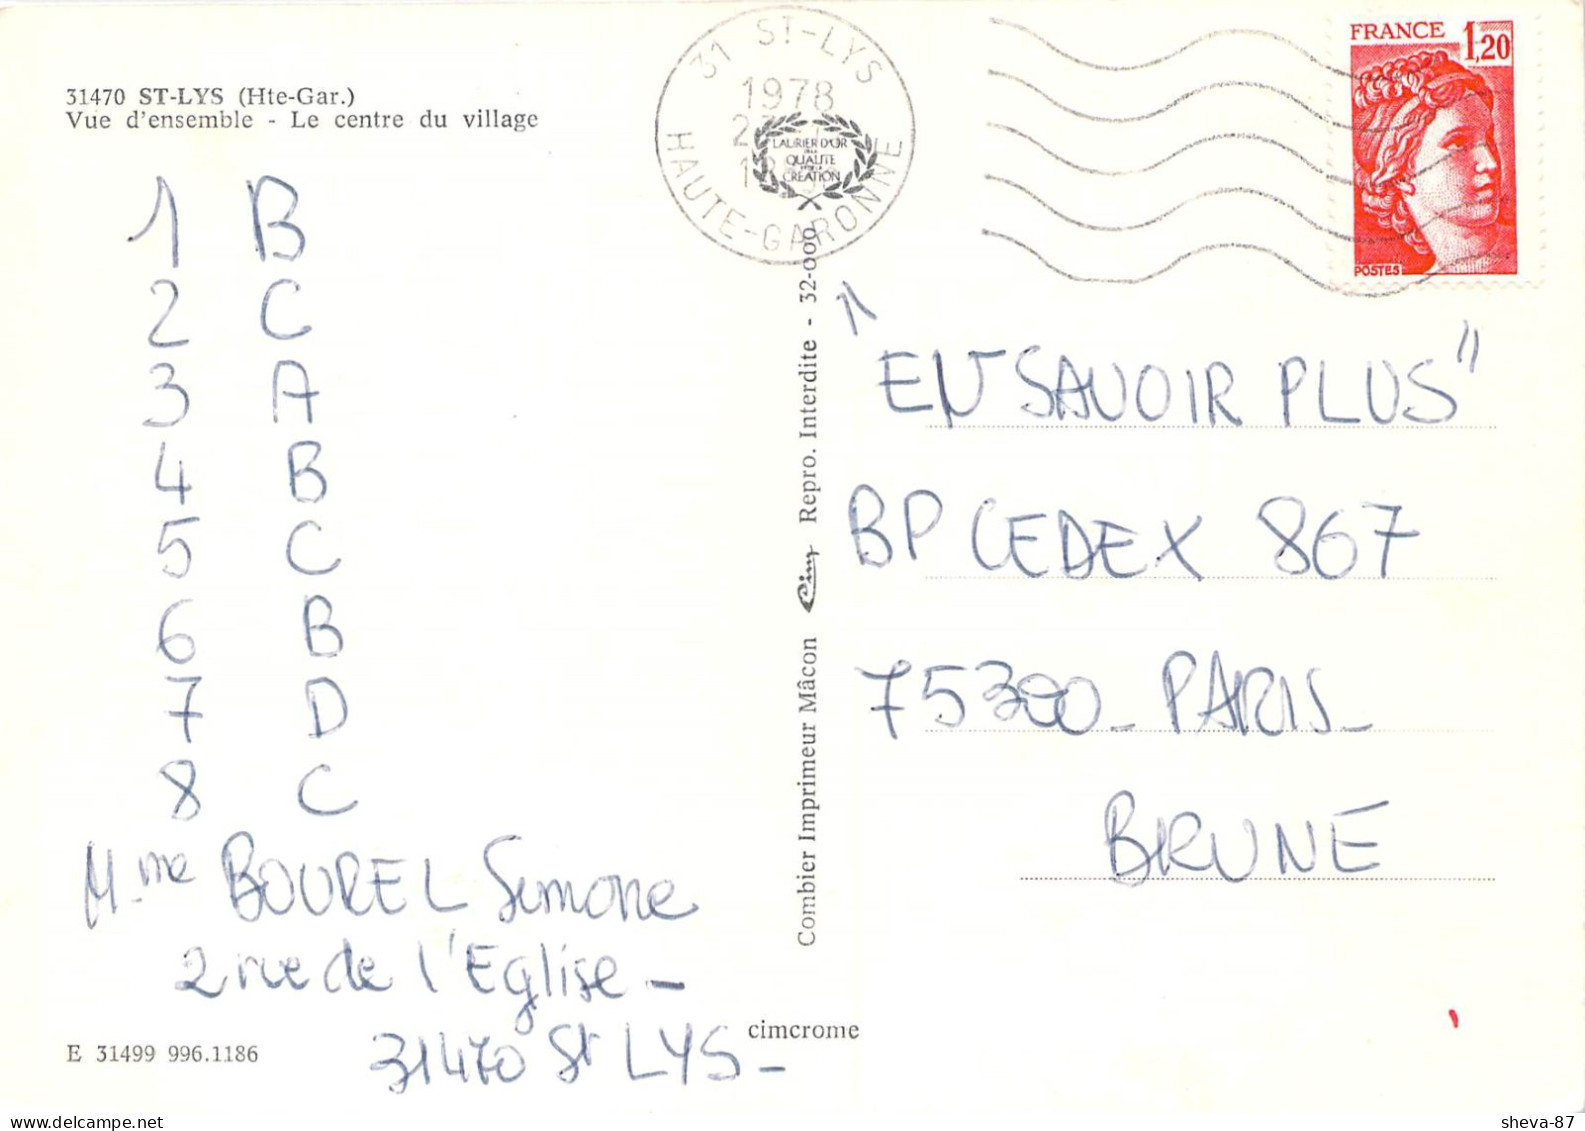 31470 ST-LYS (Hte-Gar.)
Vue d'ensemble - Le centre du village
1 B
2 C
3 A
4 B
5 C
6 B
7 D
8 C
Mme BOUREL Simone
2 rue de l'Eglise -
31470 St LYS -
E 31499 996.1186
cimcrome
31 ST-LYS
1978
HAUTE-GARONNE
LAURIER D'OR
QUALITE
CREATION
Combier Imprimeur Mâcon Cim Repro. Interdite - 32-000
FRANCE 1,20
POSTES
"EN SAVOIR PLUS"
BP CEDEX 867
75300 - PARIS -
BRUNE
sheva-87